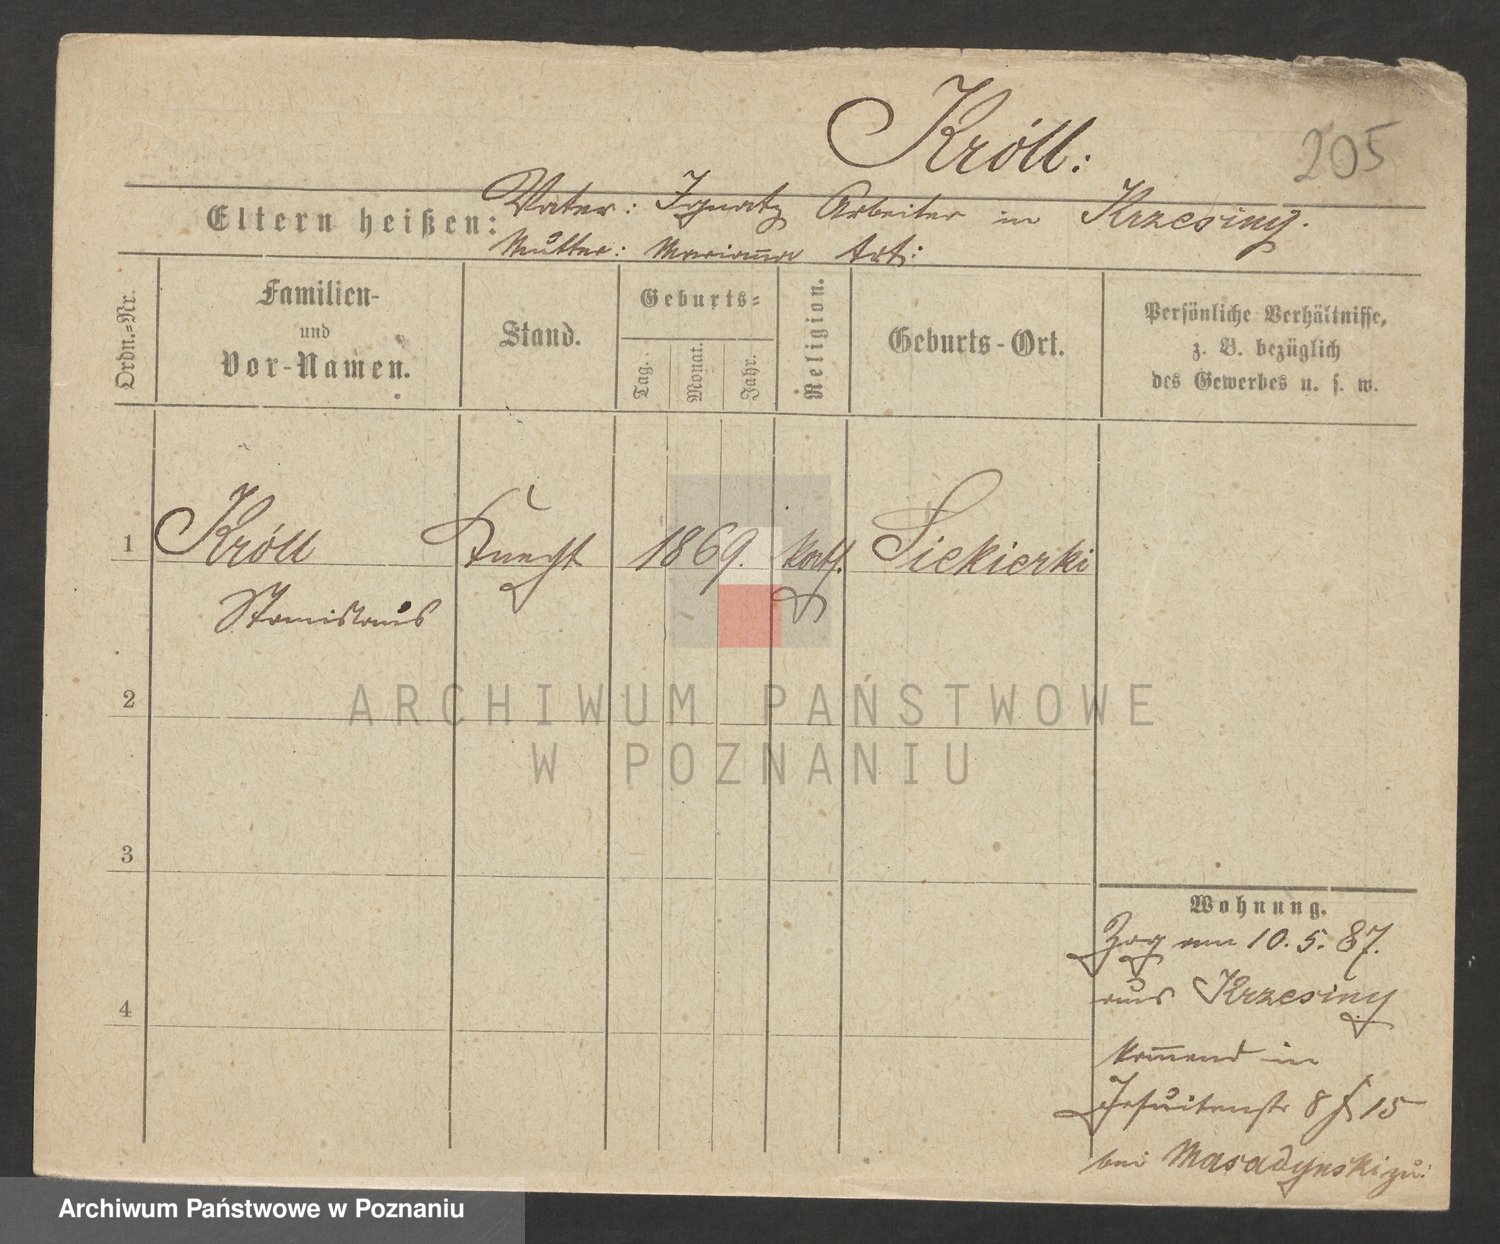 Króll:
205
Eltern heißen:
Vater: Ignatz Arbeiter in Krzesiny.
Mutter: Marianna
Ordn.=Nr.
Familien-
und
Vor-Namen.
Stand.
Geburts=
Tag.
Monat.
Jahr.
Religion.
Geburts-Ort.
Persönliche Verhältnisse,
z. B. bezüglich
des Gewerbes u. s. w.
1
Króll
Stanislaus
Knecht
1869.
kath.
Siekierki
2
3
4
Wohnung.
Zog am 10.5.87.
aus Krzesiny
kommend in
Jesuitenstr 8 15
bei zu:
ARCHIWUM PAŃSTWOWE
W POZNANIU
Archiwum Państwowe w Poznaniu